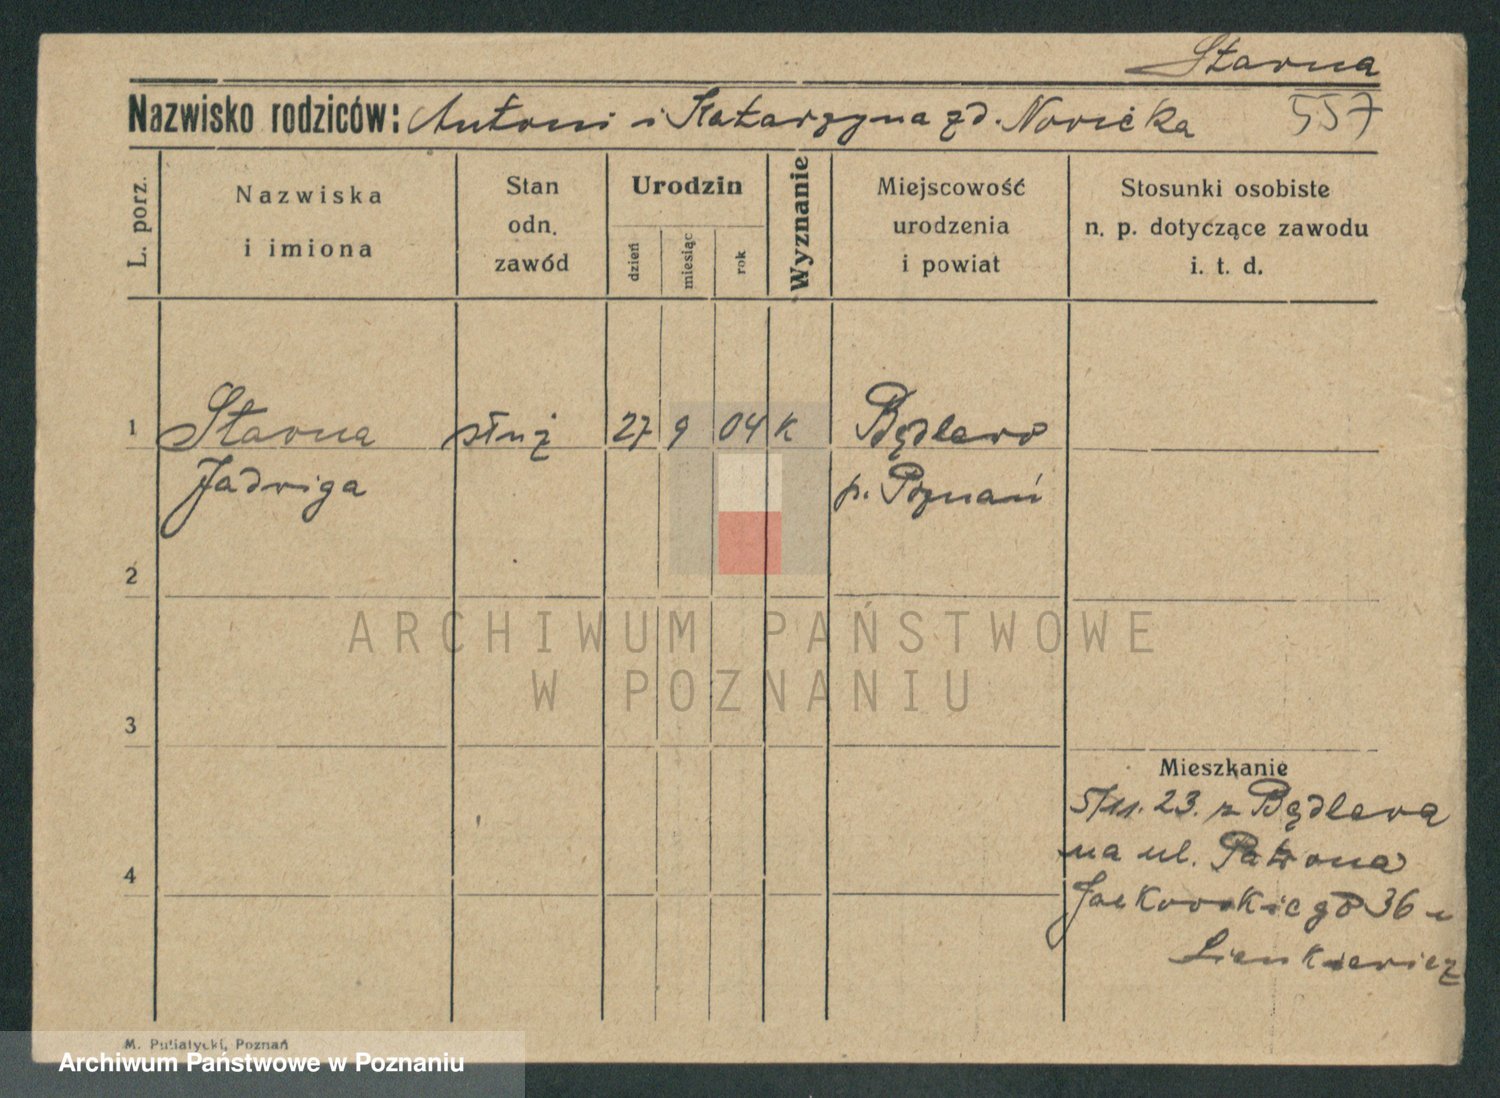 Starna
Nazwisko rodziców: Antoni i Katarzyna zd. Nowicka 557
L. porz.
Nazwiska
i imiona
Stan
odn.
zawód
Urodzin
dzień
miesiąc
rok
Wyznanie
Miejscowość
urodzenia
i powiat
Stosunki osobiste
n. p. dotyczące zawodu
i. t. d.
1 Starna służ 27 9 04 K Będlewo
Jadwiga p. Poznań
2
ARCHIWUM PAŃSTWOWE
W POZNANIU
3
Mieszkanie
5/11. 23. z Będlewa
na ul. Patrona
4
Jackowskiego 36 u
Sienkiewicz
M. Putiatycki, Poznań
Archiwum Państwowe w Poznaniu